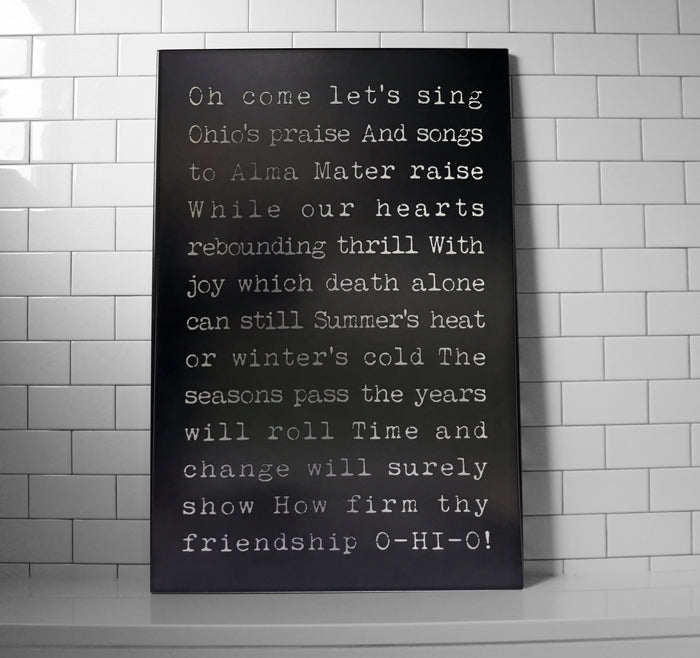 Oh come let's sing
Ohio's praise And songs
to Alma Mater raise
While our hearts
rebounding thrill With
joy which death alone
can still Summer's heat
or winter's cold The
seasons pass the years
will roll Time and
change will surely
show How firm thy
friendship O-HI-O!